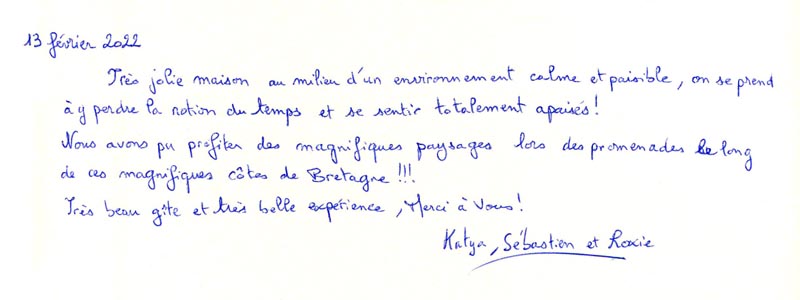 13 février 2022
Très jolie maison au milieu d'un environnement calme et paisible, on se prend
à y perdre la notion du temps et se sentir totalement apaisés!
Nous avons pu profiter des magnifiques paysages lors des promenades le long
de ces magnifiques côtes de Bretagne !!!
Très beau gîte et très belle expérience, Merci à Vous!
Katya, Sébastien et Roxie